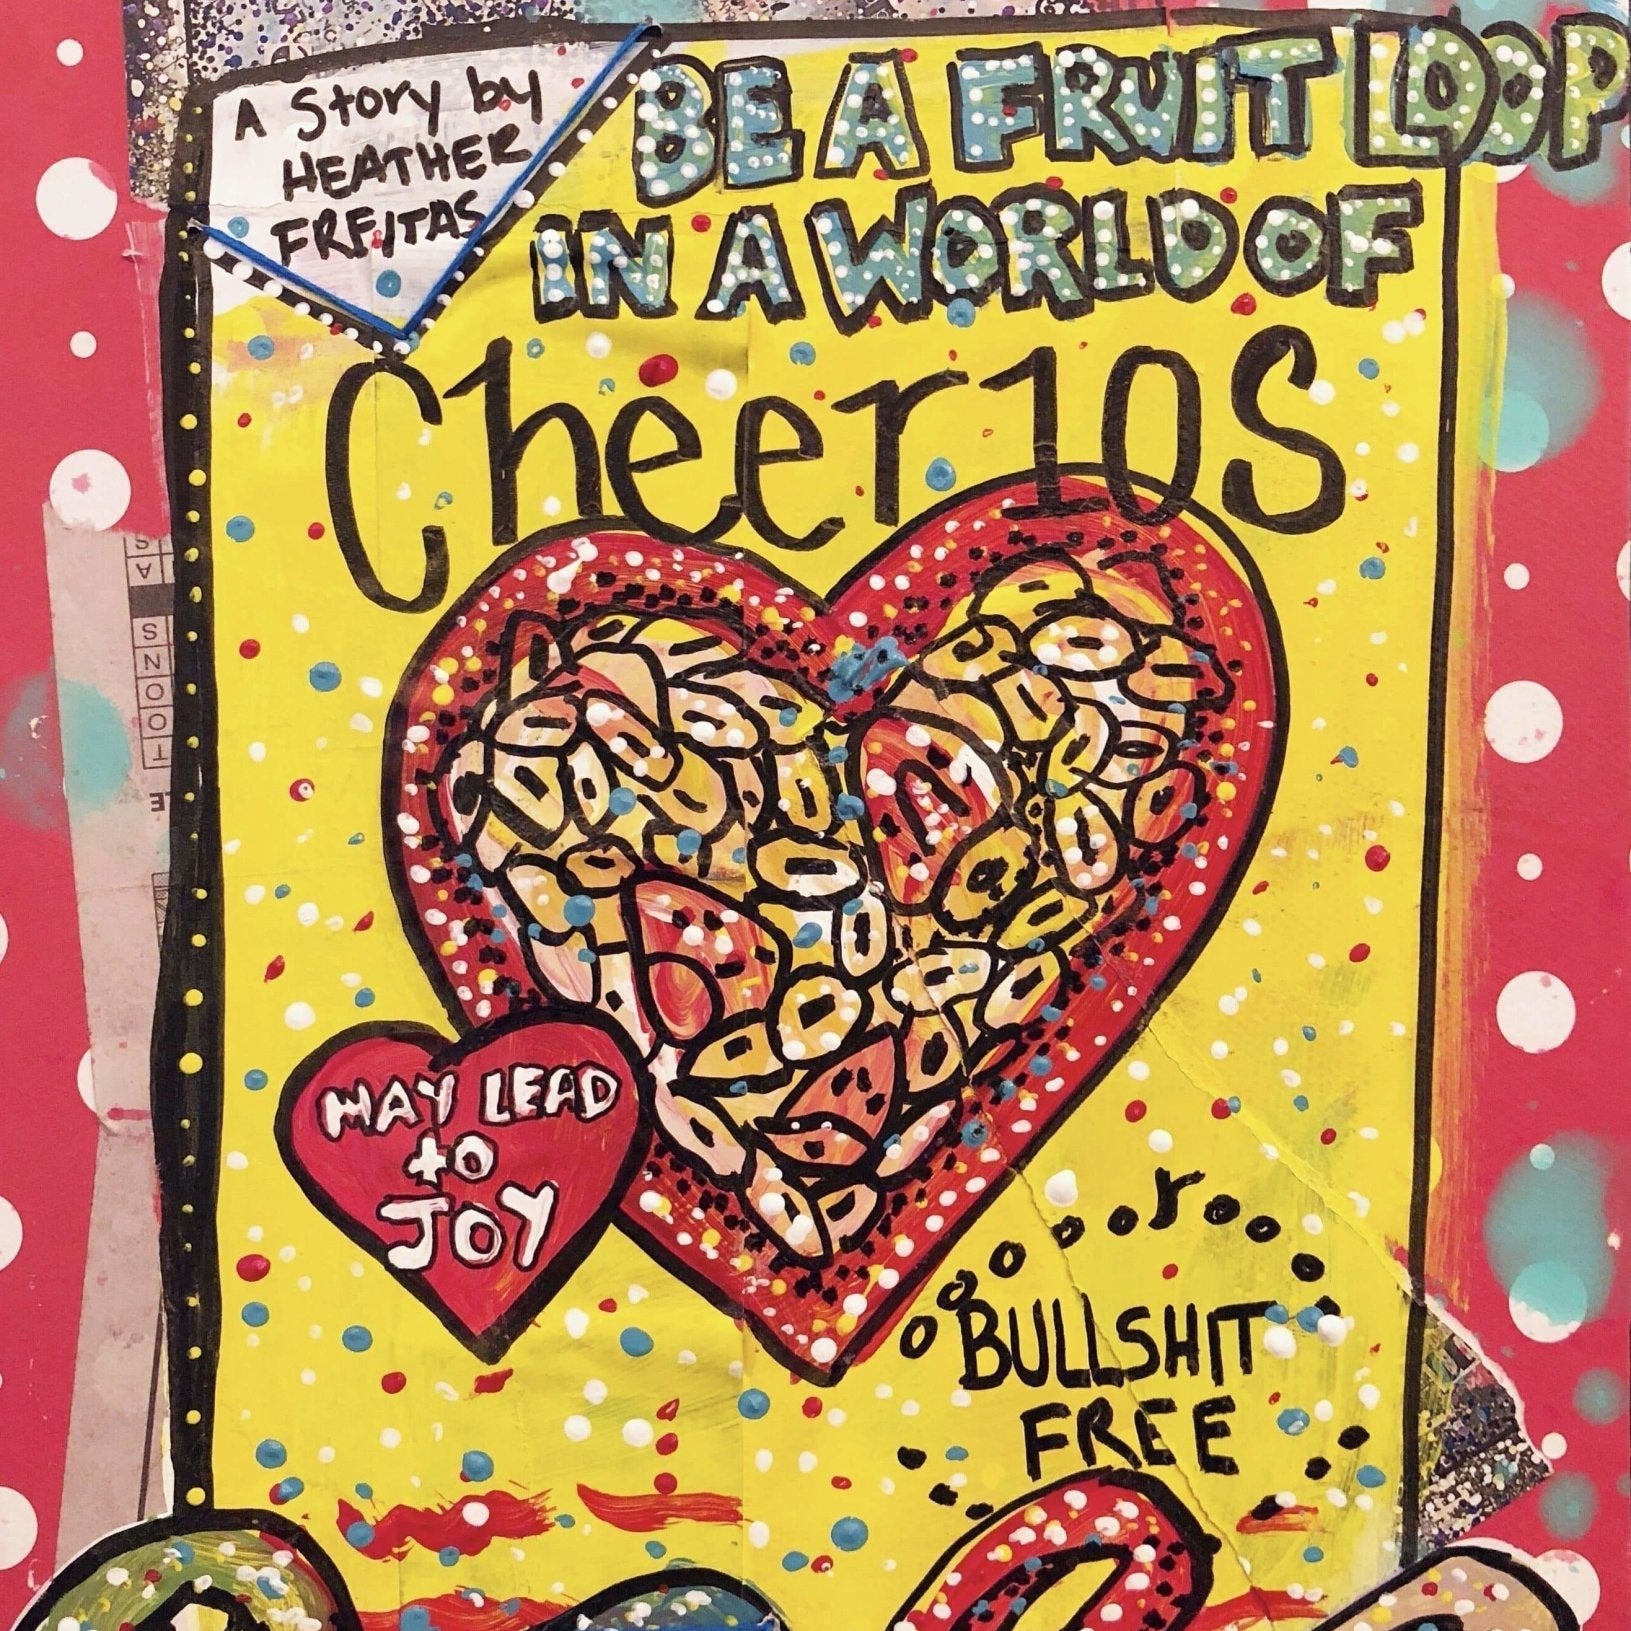 A Story by
HEATHER
FREITAS
BE A FRUIT LOOP
IN A WORLD OF
Cheer10S
MAY LEAD
to
JOY
BULLSHIT
FREE